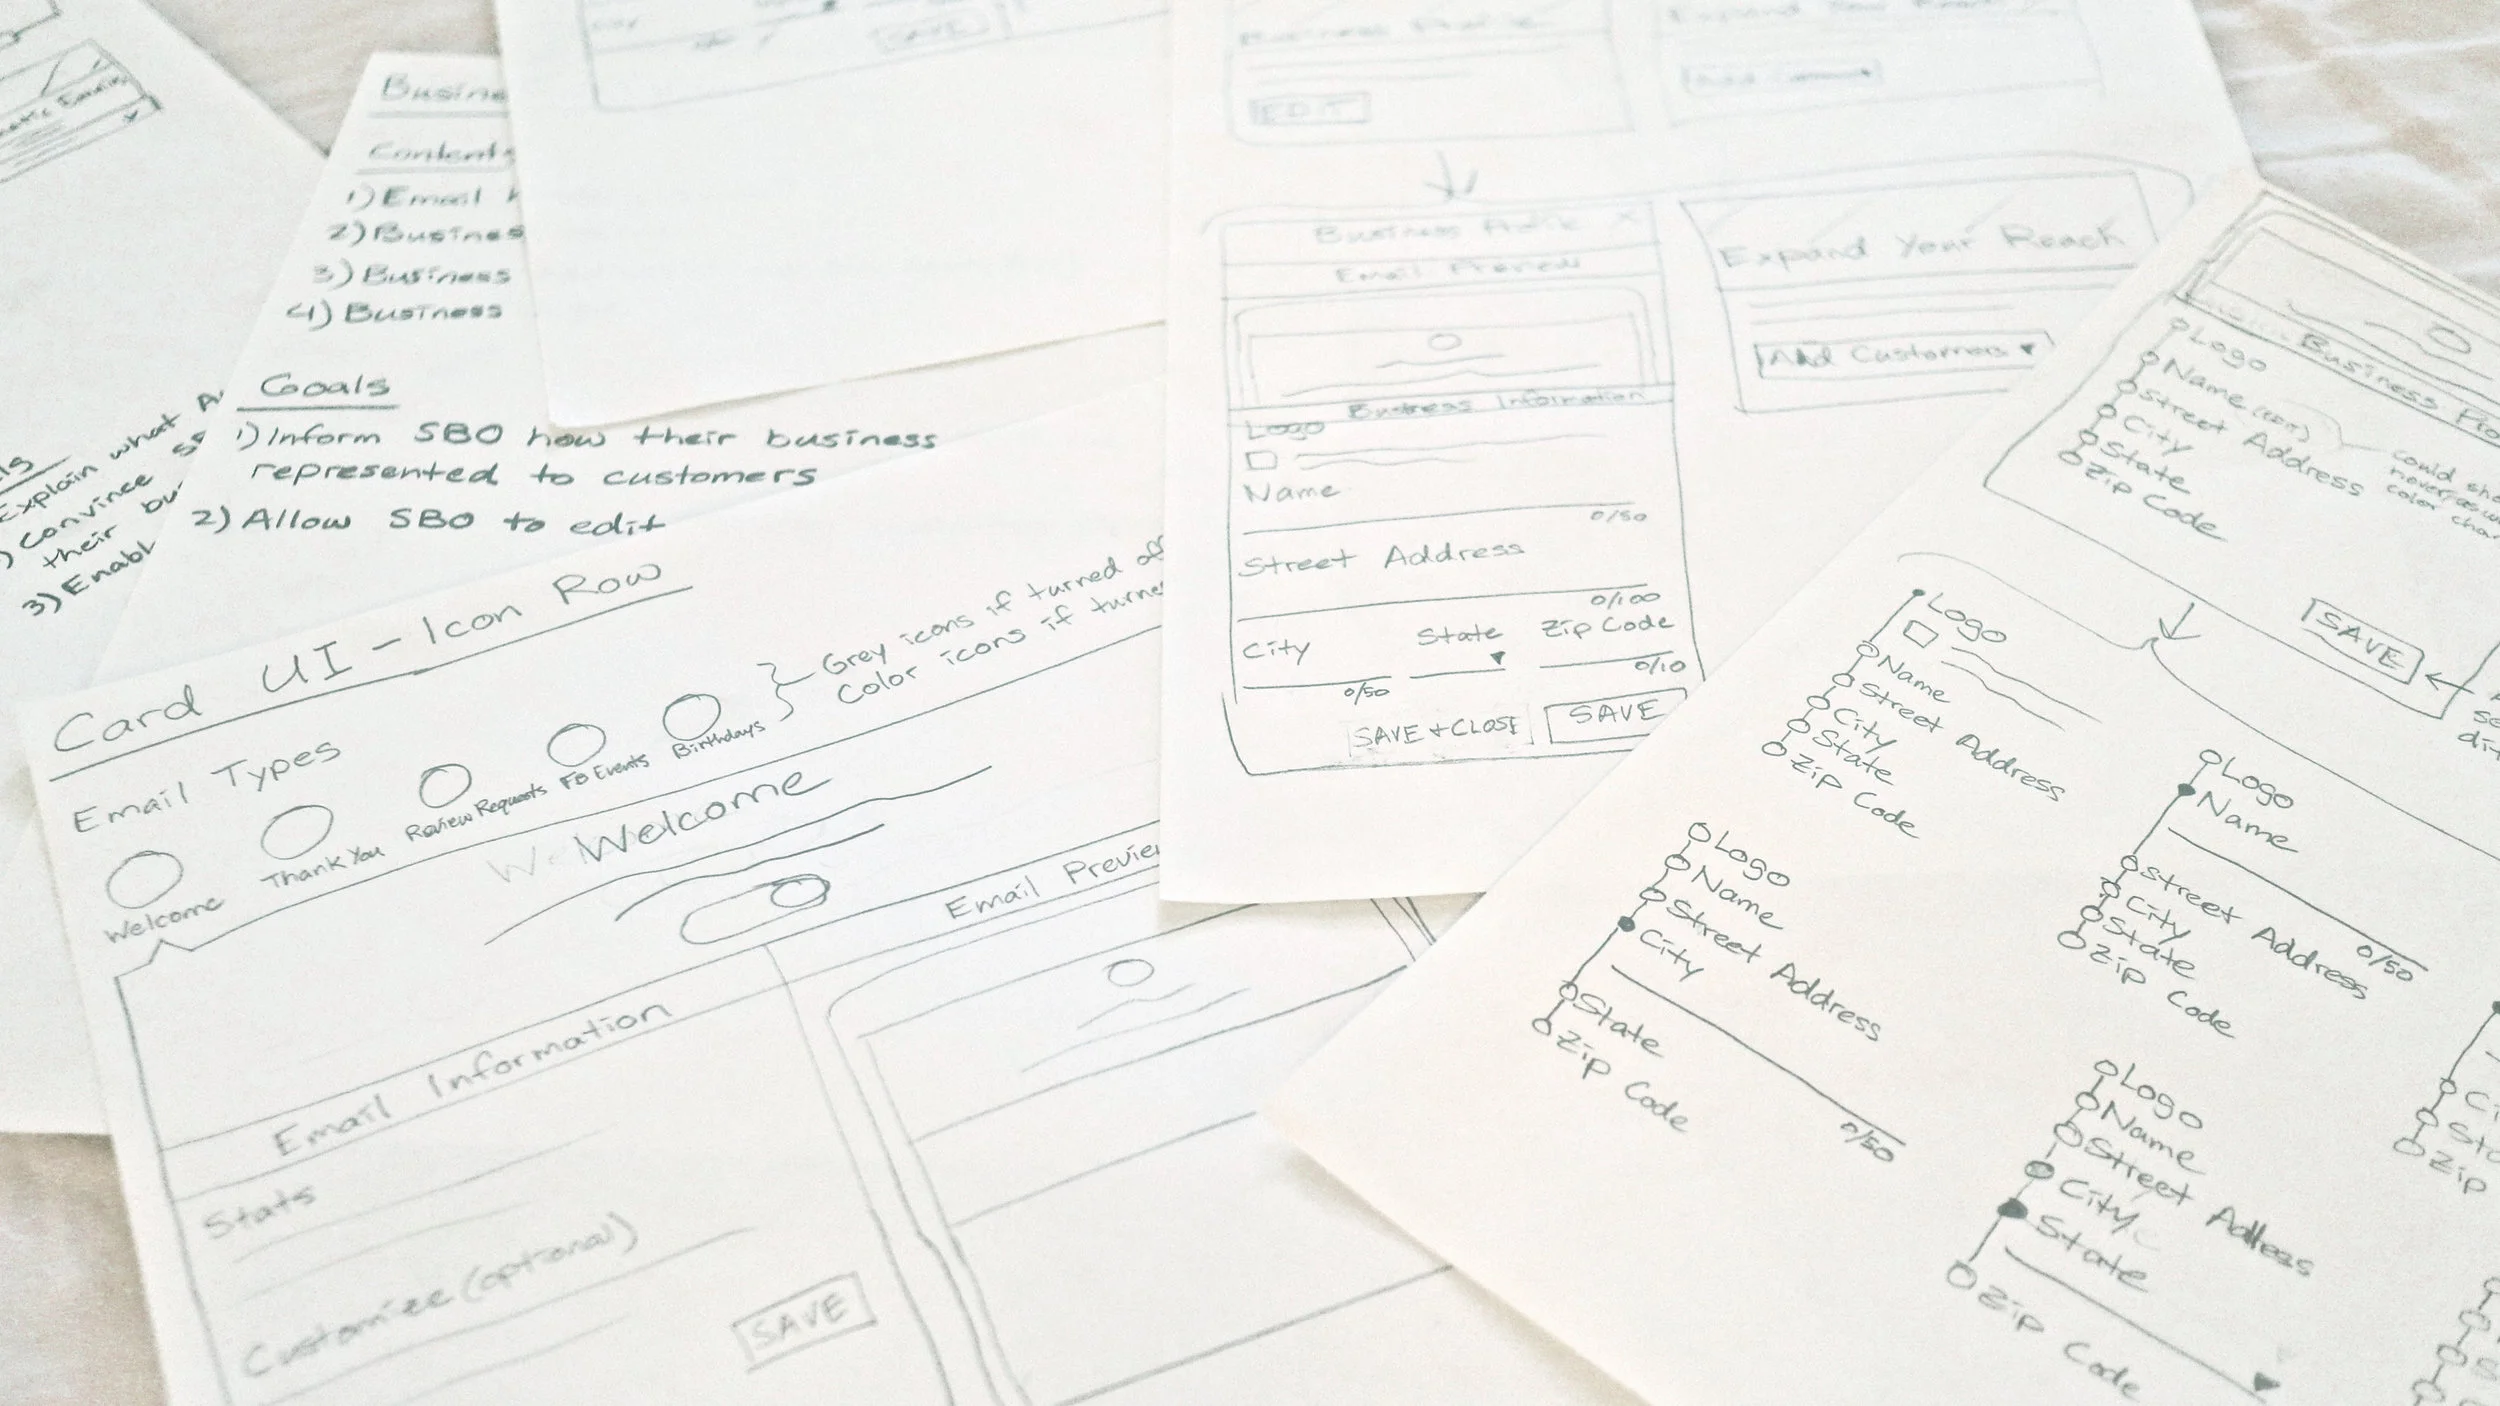 Contents
1) Email
2) Business
3) Business
4) Business
Goals
1) Inform SBO how their business
represented to customers
2) Allow SBO to edit
Explain what
Convince
their
3)
Card UI - Icon Row
Email Types
Welcome
Thank You
Review Requests
FB Events
Birthdays
Grey icons if turned
Color icons if
Welcome
Email Information
Email
Stats
Customize (optional)
SAVE
SAVE
Business Profile
EDIT
Add Customers
Business Profile X
Email Preview
Business Information
Logo
Name
0/50
Street Address
0/100
City
State
Zip Code
0/50
0/10
SAVE + CLOSE
SAVE
Expand Your Reach
Add Customers
Business
Logo
Name
Street Address
City
State
Zip Code
could
SAVE
Logo
Name
Street Address
City
State
Zip Code
Logo
Name
0/50
Street Address
City
State
Zip Code
Logo
Name
Street Address
City
0/50
State
Zip Code
Logo
Name
Street Address
City
State
Zip Code
Zip